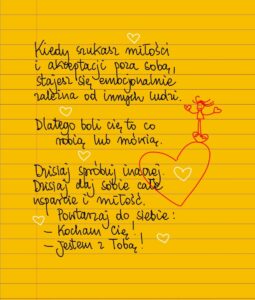 Kiedy szukasz miłości
i akceptacji poza sobą,
stajesz się emocjonalnie
zależna od innych ludzi.
Dlatego boli cię to co
robią lub mówią.
Dzisiaj spróbuj inaczej.
Dzisiaj daj sobie całe
wsparcie i miłość.
Powtarzaj do siebie:
- Kocham Cię!
- Jestem z Tobą!